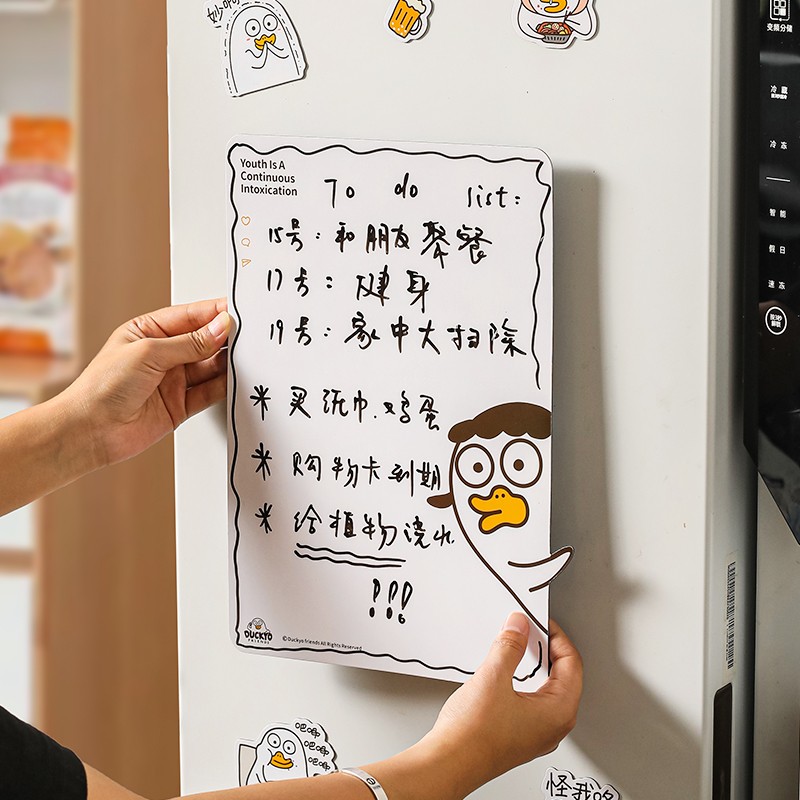 Youth Is A
Continuous
Intoxication
To do list:
15号：和朋友聚餐
17号：健身
19号：家中大扫除
* 买纸巾、鸡蛋
* 购物卡到期
* 给植物浇水
!!!
DUCKYO
FRIENDS
©Duckyo friends All Rights Reserved
吧唧
吧唧
吧唧
怪我咯
变频分储
冷藏
冷冻
智能
假日
速冻